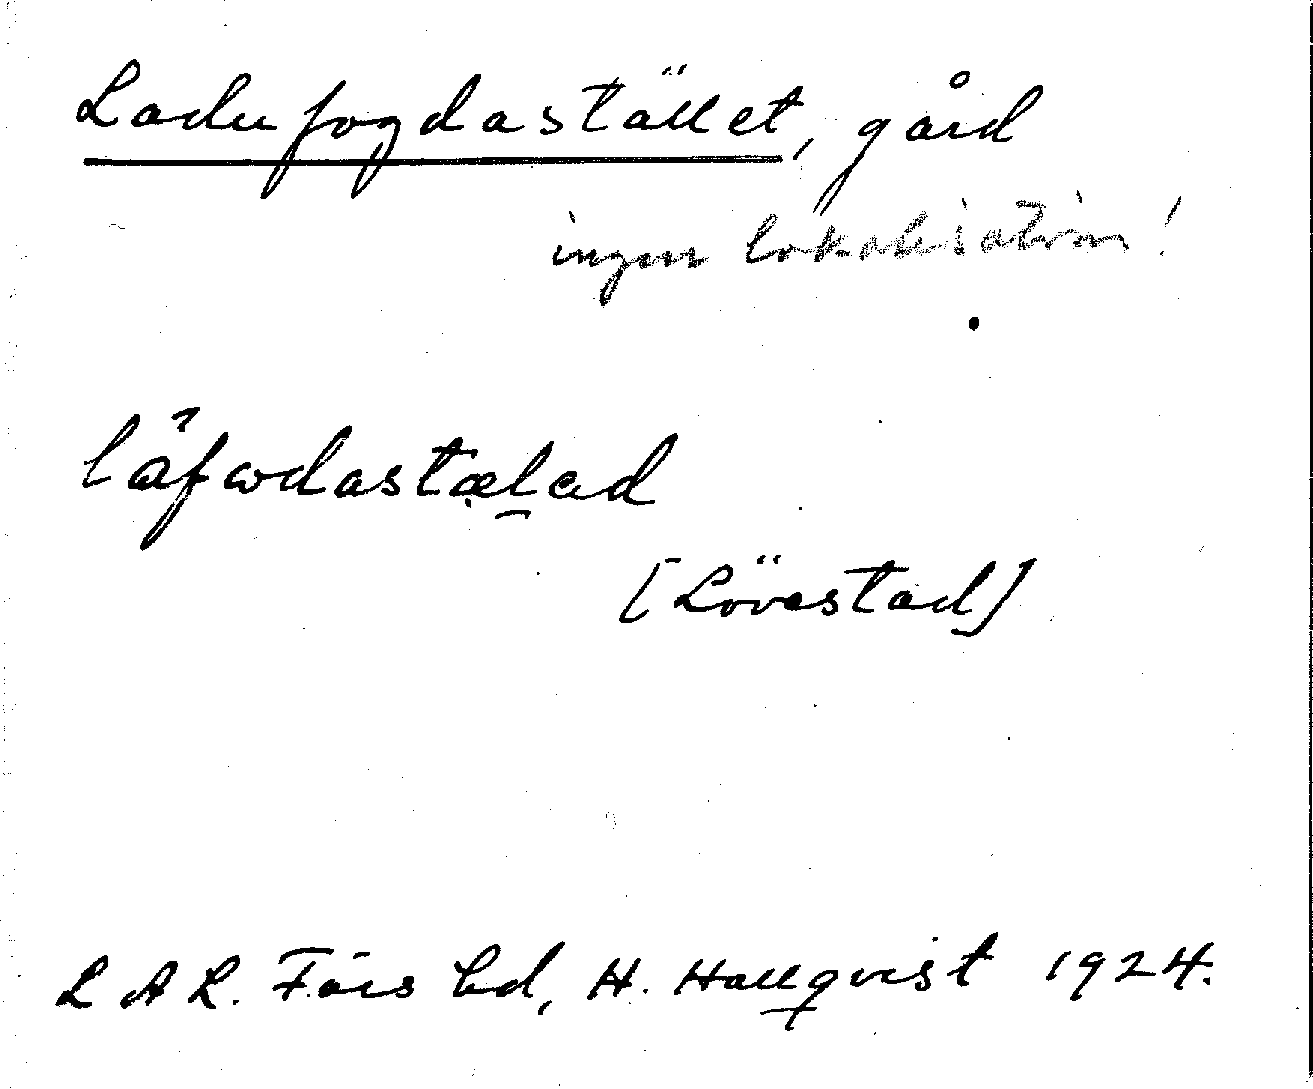 Ladufogdastället, gård
ingen lokalisation!
[Lövestad]
L A L. Färs hd, H. Hallqvist 1924.